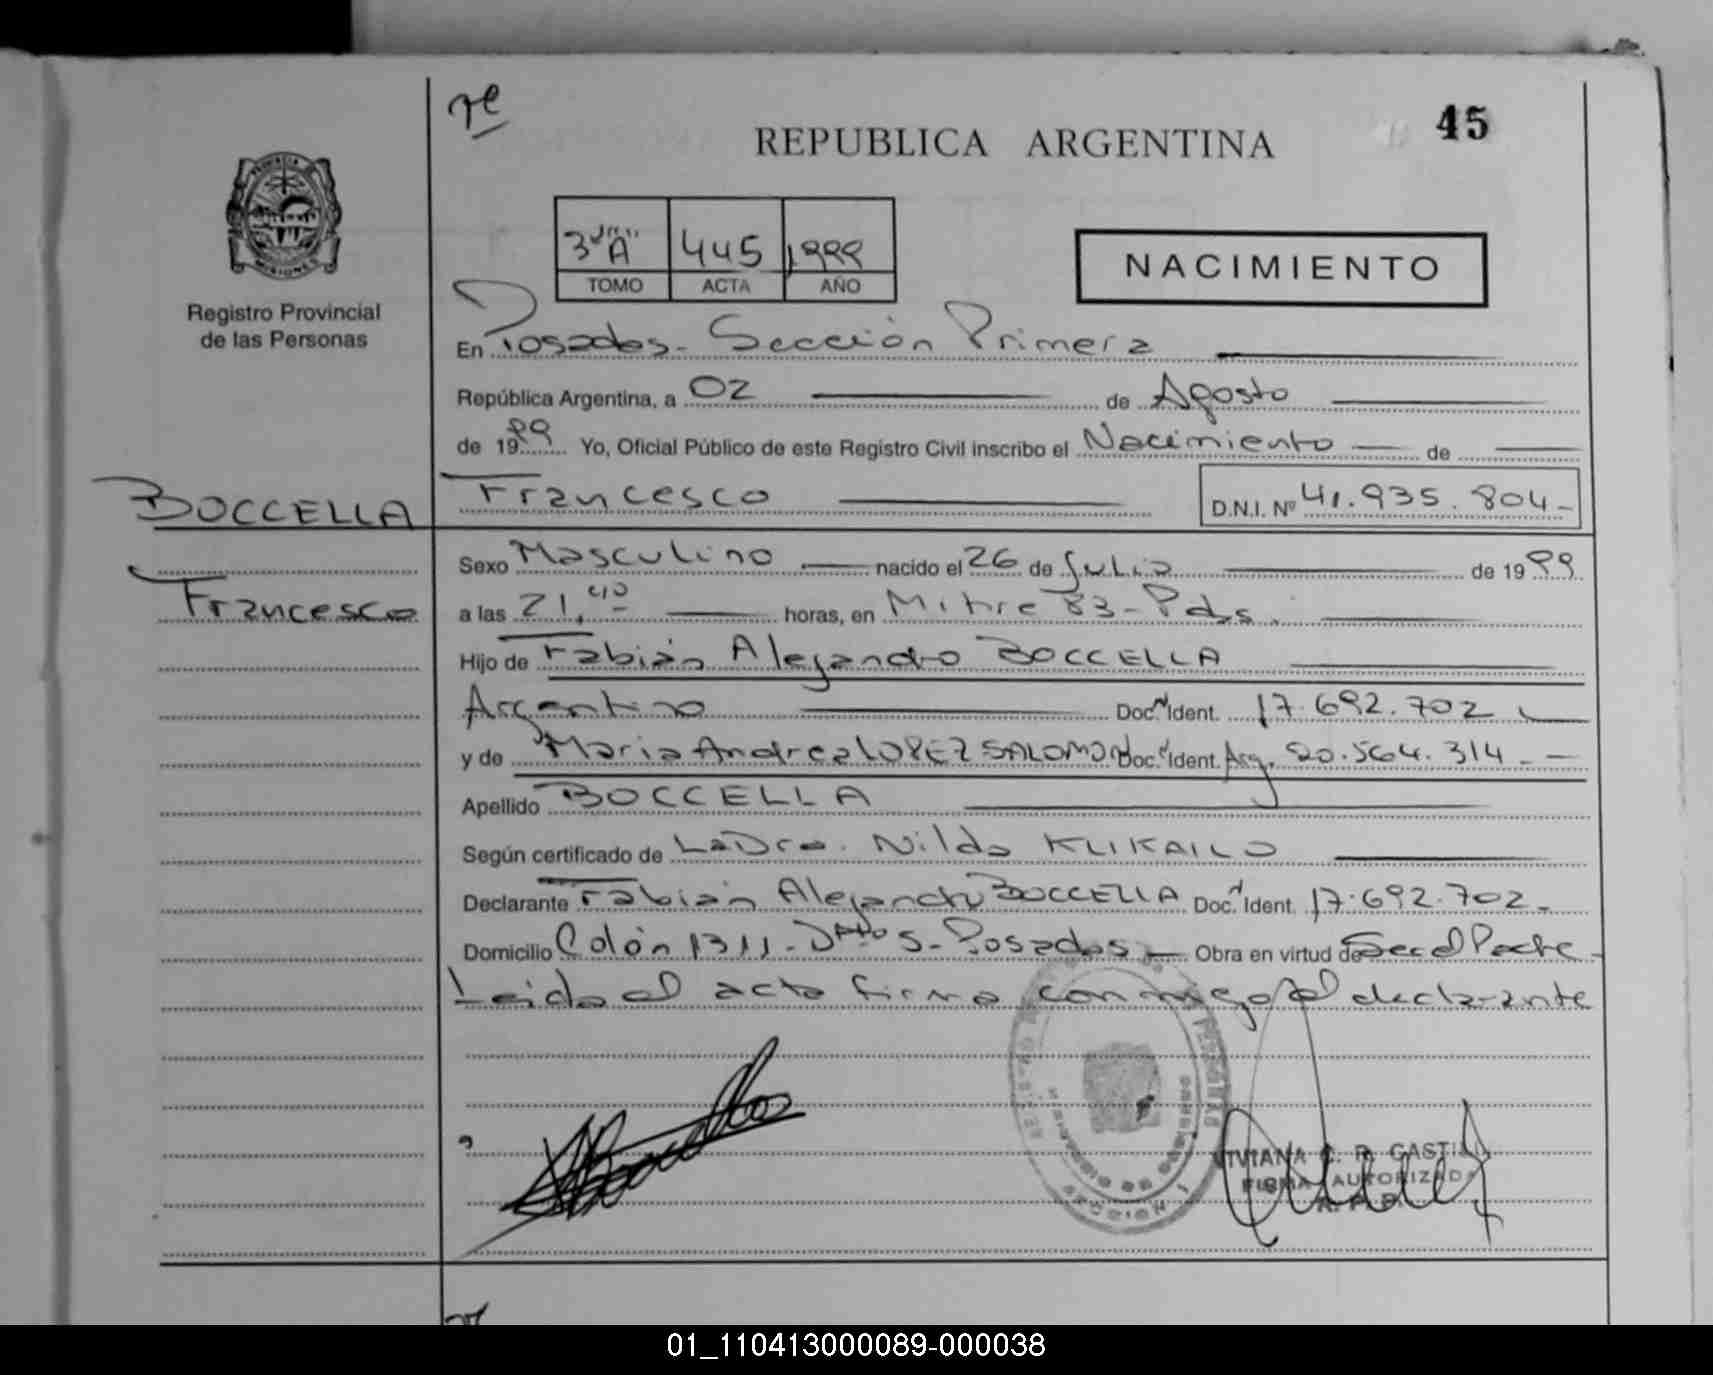 re
45
REPUBLICA ARGENTINA
MISIONES
Registro Provincial
de las Personas
3º "A" 445 1999
TOMO ACTA AÑO
NACIMIENTO
En Posadas - Sección Primera
República Argentina, a 02 de Agosto
de 1999 Yo, Oficial Público de este Registro Civil inscribo el Nacimiento de
BOCCELLA
Francesco
Francesco D.N.I. Nº 41.935.804-
Sexo Masculino nacido el 26 de Julio de 1999
a las 21,40 horas, en Mitre 83 - Pdas.
Hijo de Fabián Alejandro BOCCELLA
Argentino Doc. Ident. 17.692.702
y de Maria Andrea LOPEZ SALOMON Doc. Ident. Arg. 20.564.314.-
Apellido BOCCELLA
Según certificado de La Dra. Nilda KLIKAILO
Declarante Fabián Alejandro BOCCELLA Doc. Ident. 17.692.702.-
Domicilio Colón 1311 - Dpto 5 - Posadas - Obra en virtud de Ser el Padre -
Leida el acta firma conmigo el declarante
VIVIANA C. R. CASTIL
FIRMA AUTORIZADA
01_110413000089-000038